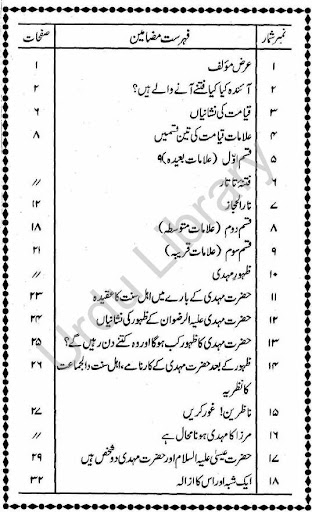 نمبر شمار فہرست مضامین صفحات
۱ عرض مؤلف ۱
۲ آئندہ کیا کیا فتنے آنے والے ہیں؟ ۲
۳ قیامت کی نشانیاں ۶
۴ علامات قیامت کی تین قسمیں ۸
۵ قسم اوّل (علامات بعیدہ) ۹
۶ فتنۂ تاتار //
۷ نار الحجاز ۱۲
۸ قسم دوم (علامات متوسطہ) ۱۸
۹ قسم سوم (علامات قریبہ) ۲۱
۱۰ ظہور مہدی //
۱۱ حضرت مہدی کے بارے میں اہل سنت کا عقیدہ ۲۳
۱۲ حضرت مہدی علیہ الرضوان کے ظہور کی نشانیاں ۲۴
۱۳ حضرت مہدی کا ظہور کب ہوگا اور وہ کتنے دن رہیں گے؟ ۲۵
۱۴ ظہور کے بعد حضرت مہدی کے کارنامے، اہل سنت والجماعت ۲۶
کا نظریہ
۱۵ ناظرین! غور کریں ۲۷
۱۶ مرزا کا مہدی ہونا محال ہے //
۱۷ حضرت عیسیٰ علیہ السلام اور حضرت مہدی دو شخص ہیں ۲۹
۱۸ ایک شبہ اور اس کا ازالہ ۳۲
Urdu Library